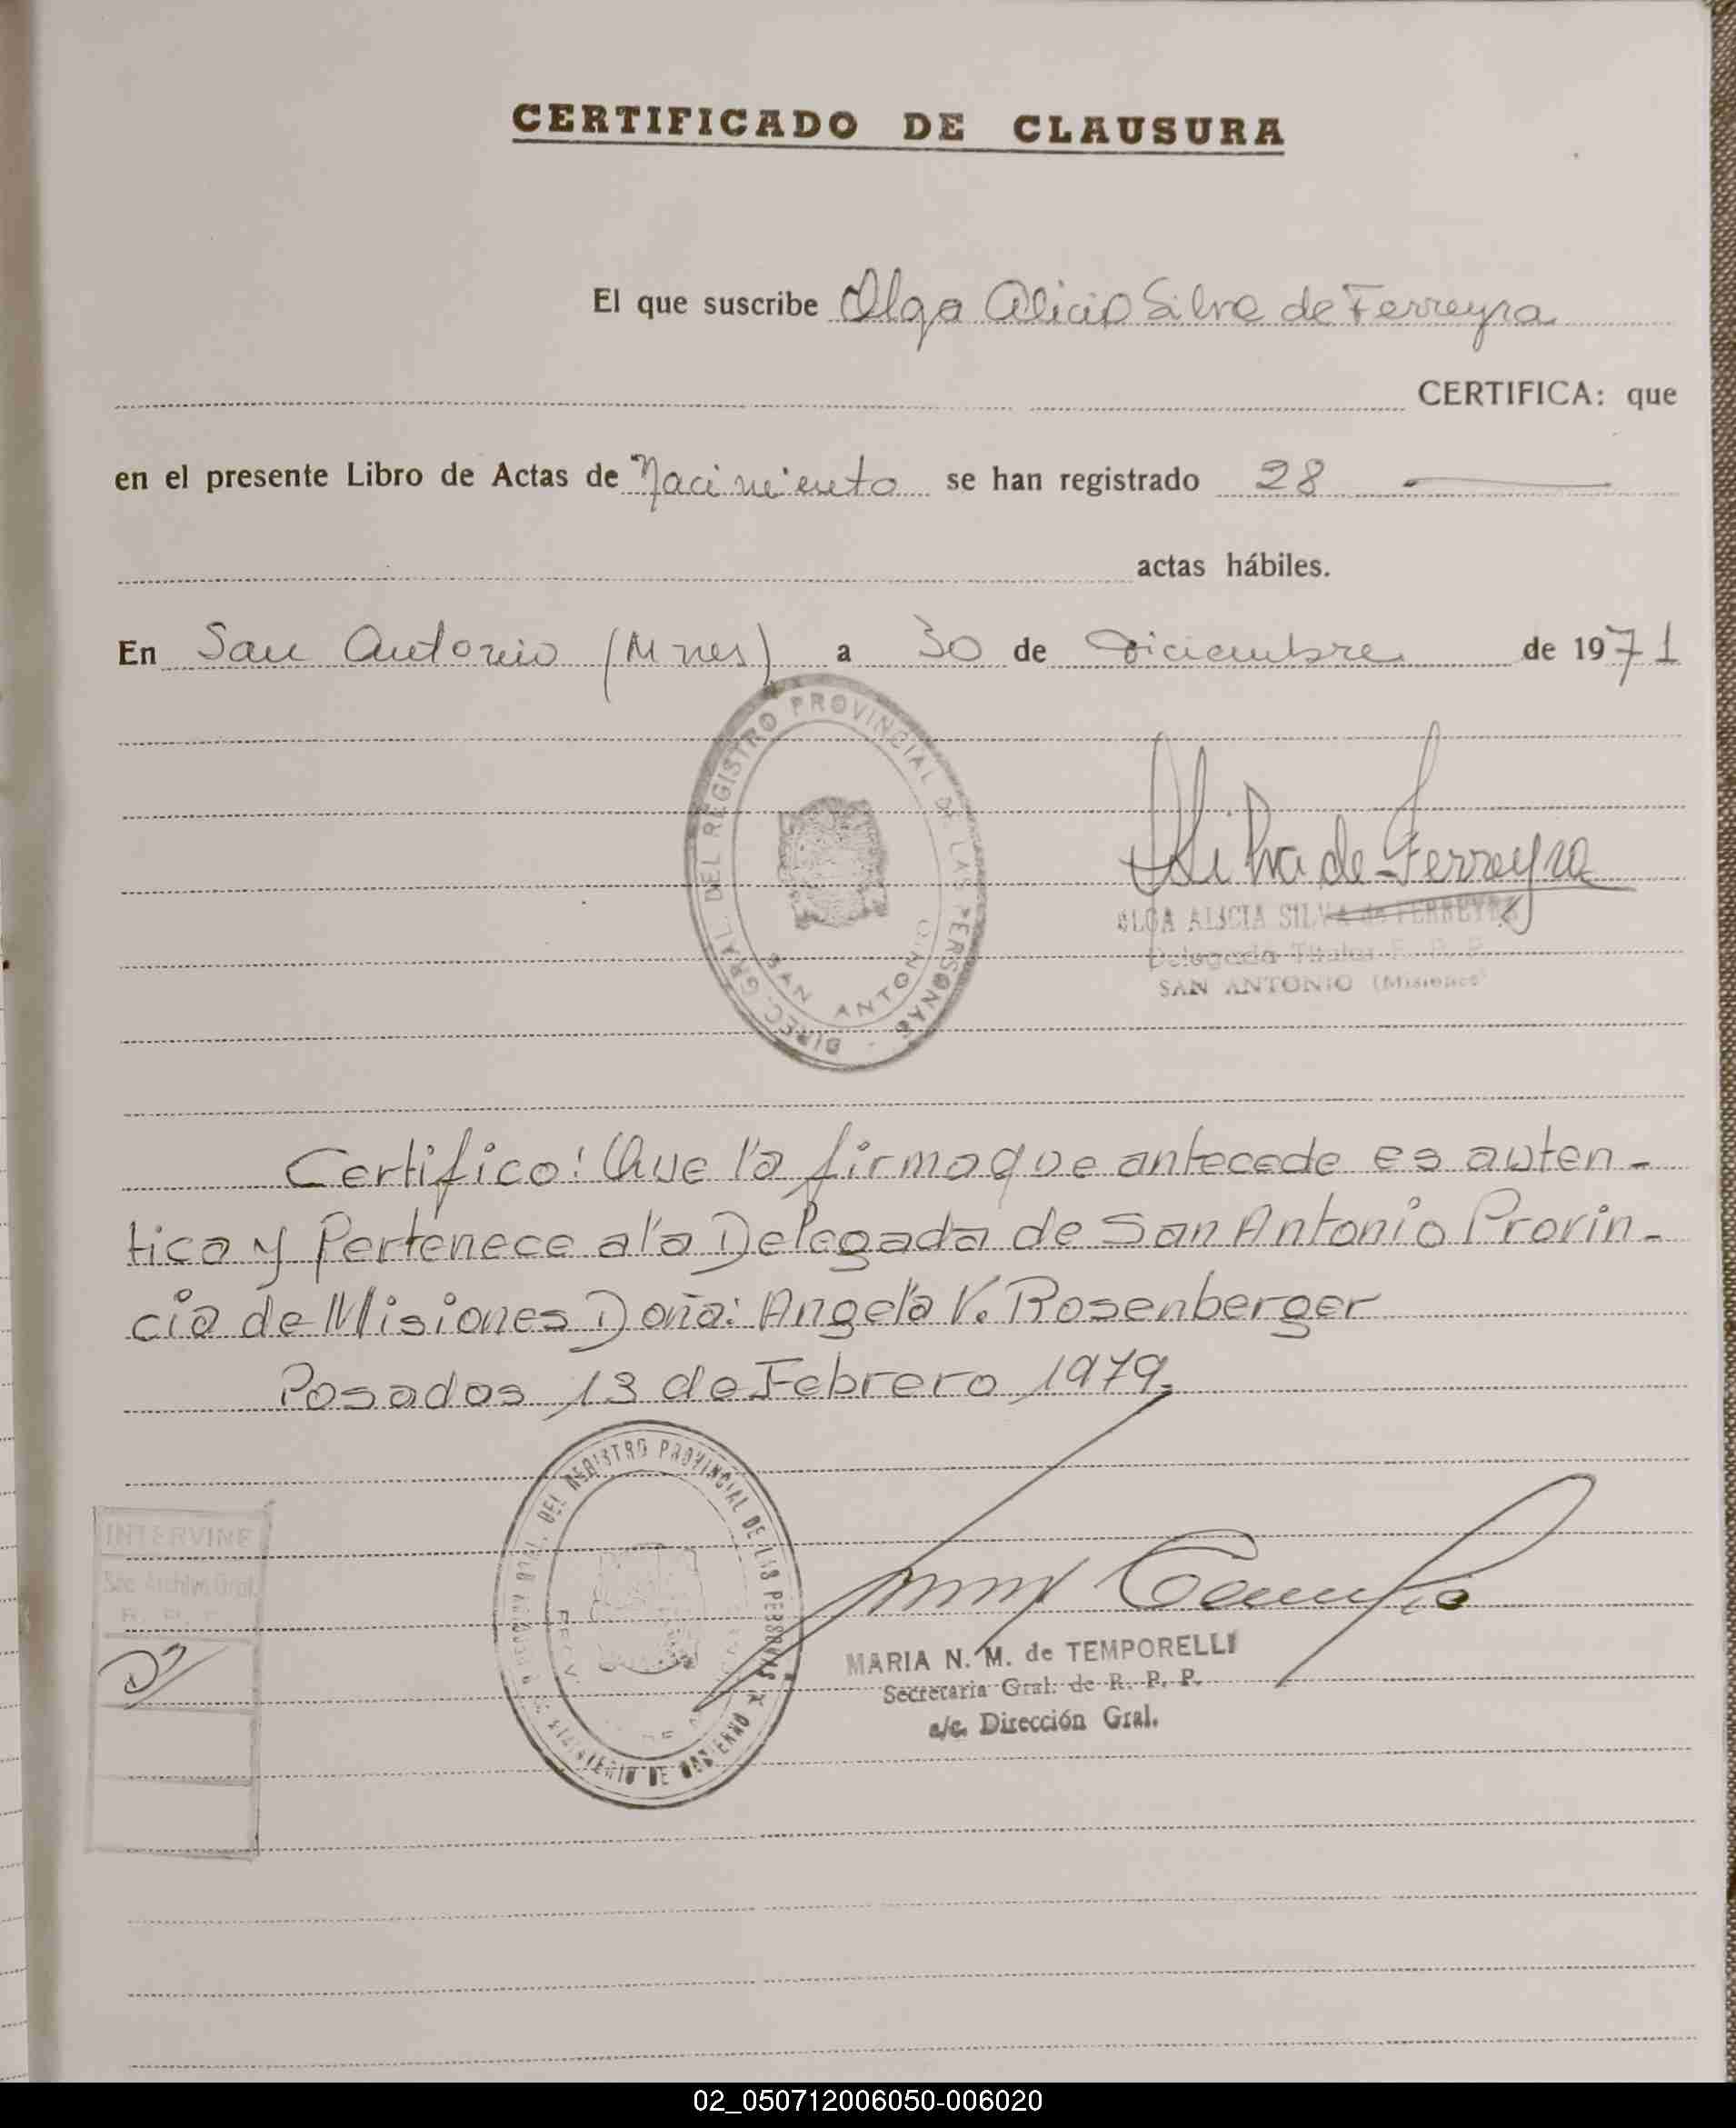 CERTIFICADO DE CLAUSURA
El que suscribe Olga Alicia Silva de Ferreyra
CERTIFICA: que
en el presente Libro de Actas de Nacimiento se han registrado 28
actas hábiles.
En San Antonio (Mnes) a 30 de Diciembre de 1971
DIREC. GRAL. DEL REGISTRO PROVINCIAL DE LAS PERSONAS
SAN ANTONIO
Silva de Ferreyra
OLGA ALICIA SILVA de FERREYRA
Delegada Titular R. P. P.
SAN ANTONIO (Misiones)
Certifico: Que la firma que antecede es auten-
tica y Pertenece a la Delegada de San Antonio Provin-
cia de Misiones Doña: Angela V. Rosenberger
Posadas 13 de Febrero 1979.
INTERVINE
Sec. Archivo Gral.
R. P. P.
DEL REGISTRO PROVINCIAL DE LAS PERSONAS
MINISTERIO DE GOBIERNO
MARIA N. M. de TEMPORELLI
Secretaria Gral. de R. P. P.
a/c. Dirección Gral.
02_050712006050-006020